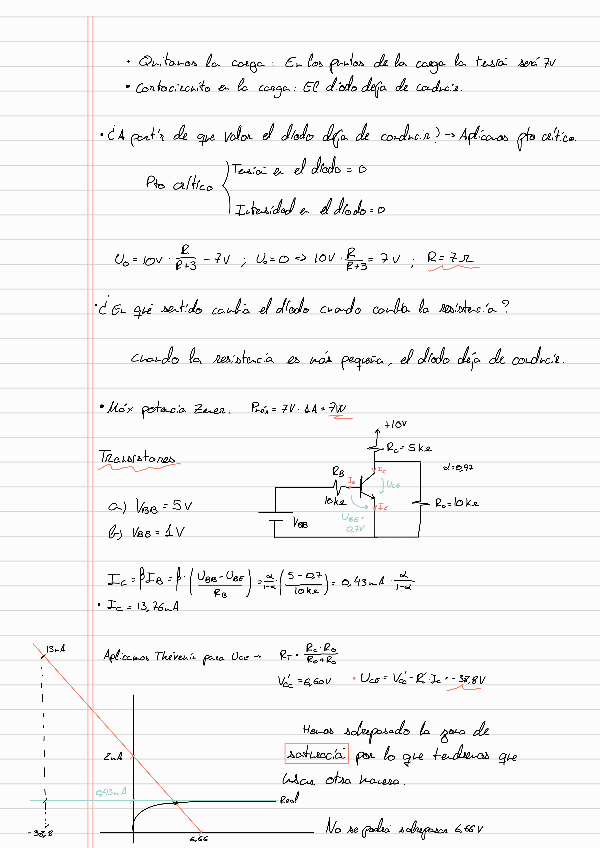 • Quitamos la carga: En los puntos de la carga la tensió será 7V
• Cortocircuito en la carga: El diodo deja de conducir.
• ¿A partir de que valor el diodo deja de conducir? → Aplicamos pto crítico.
Pto crítico
Tensió en el diodo = 0
Intensidad en el diodo = 0
U₀ = 10V · R/(R+3) − 7V ; U₀ = 0 => 10V · R/(R+3) = 7V ; R = 7Ω
• ¿En qué sentido cambia el diodo cuando cambia la resistencia?
Cuando la resistencia es más pequeña, el diodo deja de conducir.
• Máx potencia Zener. Pmáx = 7V · 1A = 7W
+10V
Rc = 5kΩ
Transistores
Ic
α = 0,97
RB
Ic
UCE
10kΩ
R₀ = 10kΩ
a) VBB = 5V
Ic
UBE = 0,7V
VBB
b) VBB = 1V
Ic = βIB = β · (UBB − UBE / RB) = α/(1−α) · (5 − 0,7 / 10kΩ) = 0,43mA · α/(1−α)
• Ic = 13,76mA
13mA
Aplicamos Thévenin para UCE → RT = Rc · R₀ / R₀ + R₀
V'cc = 6,60V • UCE = V'cc − R'c · Ic = −38,8V
Hemos sobrepasado la zona de
2mA
saturació por lo que tendremos que
usar otra manera.
0,43mA
Real
−38,8
6,66
No se podrá sobrepasar 6,66V